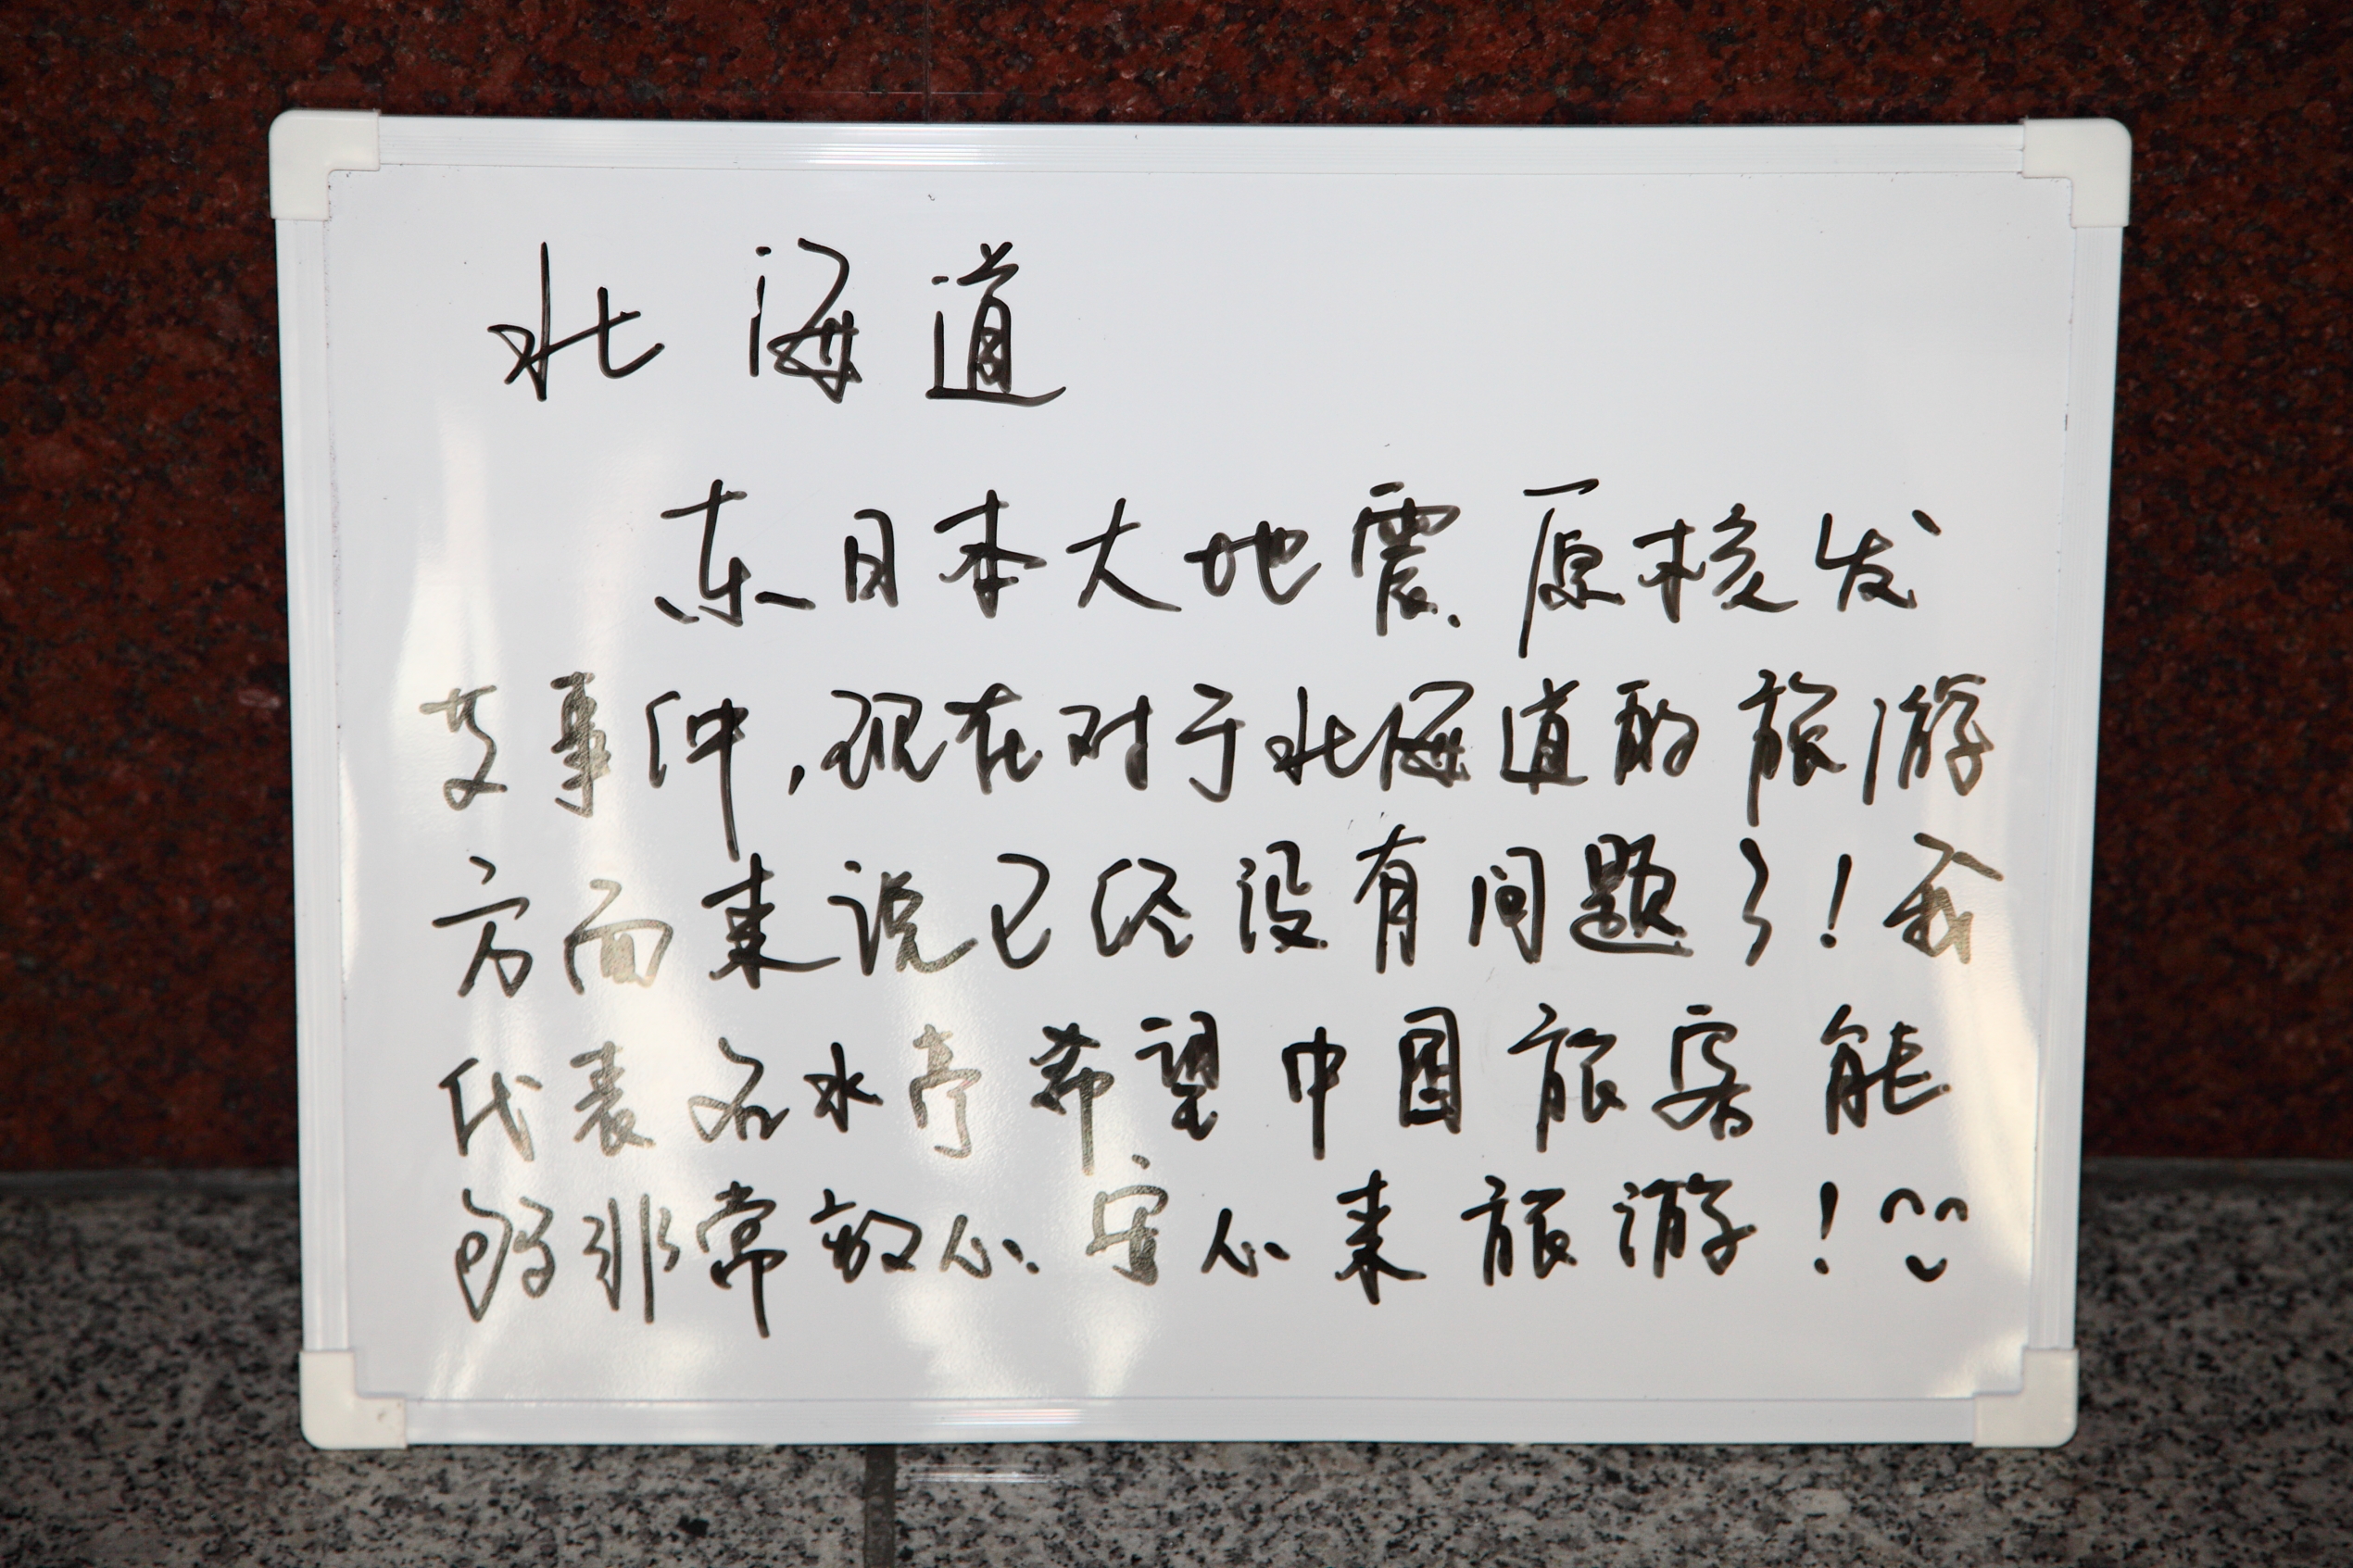 北海道
东日本大地震原核发
艾事件,现在对于北海道的旅游
方面来说已经没有问题了!我
代表名水亭希望中国旅客能
够非常放心安心来旅游!